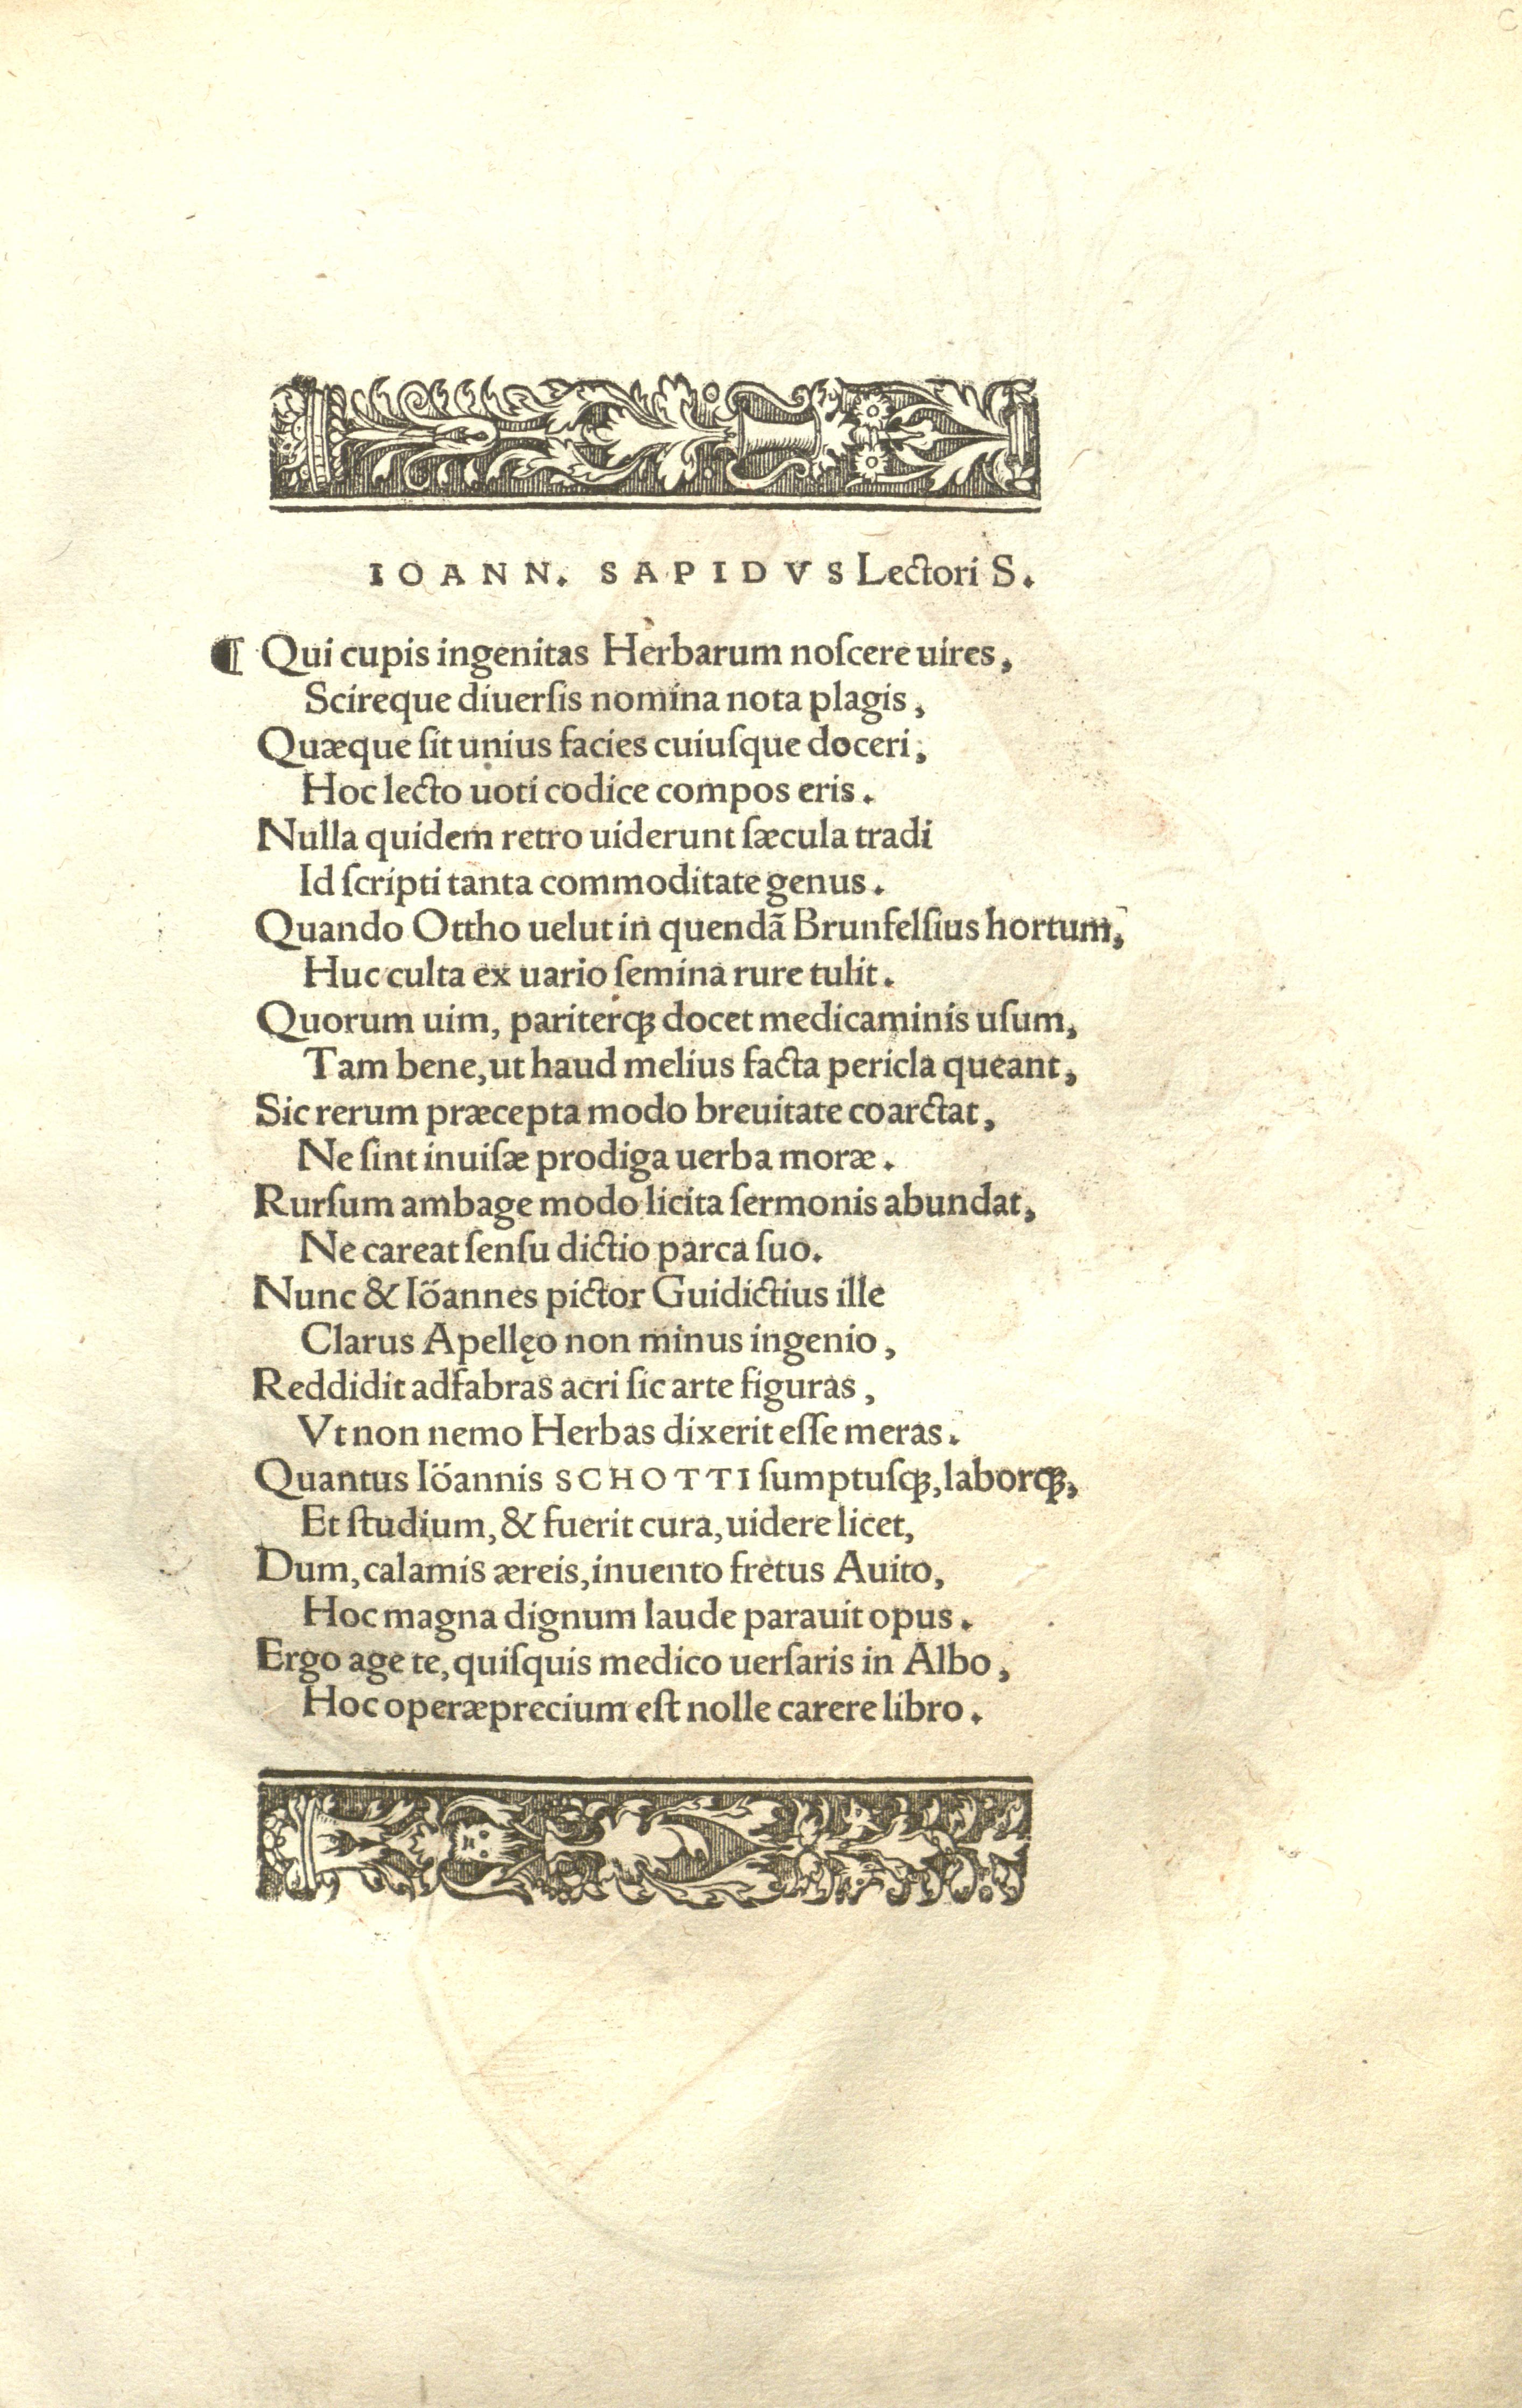 IOANN. SAPIDVS Lectori S.
¶ Qui cupis ingenitas Herbarum noſcere uires,
Scireque diuerſis nomina nota plagis,
Quæque ſit unius facies cuiuſque doceri,
Hoc lecto uoti codice compos eris.
Nulla quidem retro uiderunt ſæcula tradi
Id ſcripti tanta commoditate genus.
Quando Ottho uelut in quendã Brunfelſius hortum,
Huc culta ex uario ſemina rure tulit.
Quorum uim, pariterqꝫ docet medicaminis uſum,
Tam bene, ut haud melius facta pericla queant,
Sic rerum præcepta modo breuitate coarctat,
Ne ſint inuiſæ prodiga uerba moræ.
Rurſum ambage modo licita ſermonis abundat,
Ne careat ſenſu dictio parca ſuo.
Nunc & Iöannes pictor Guidictius ille
Clarus Apellęo non minus ingenio,
Reddidit adfabras acri ſic arte figuras,
Vt non nemo Herbas dixerit eſſe meras.
Quantus Iöannis SCHOTTI ſumptuſqꝫ, laborqꝫ,
Et ſtudium, & fuerit cura, uidere licet,
Dum, calamis æreis, inuento fretus Auito,
Hoc magna dignum laude parauit opus.
Ergo age te, quiſquis medico uerſaris in Albo,
Hoc operæprecium eſt nolle carere libro.